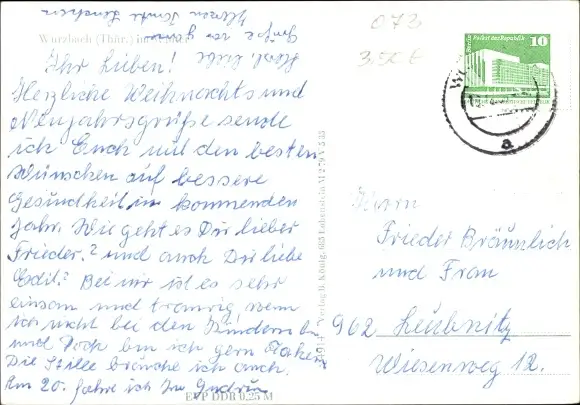 Herzl. liebe
Grüße von
Herzen Tante Lenchen
073
3,50 €
Wurzbach (Thür.) im
Ihr Lieben!
Herzliche Weihnachts und
Neujahrsgrüße sende
ich Euch mit den besten
Wünschen auf bessere
Gesundheit im kommenden
Jahr. Wie geht es Dir lieber
Frieder? und auch Dir liebe
Edit? Bei mir ist es sehr
einsam und traurig wenn
ich nicht bei den Kindern bin
und doch bin ich gern
Die Stille brauche ich auch.
Am 20. fahre ich zu Gudrun
EVP DDR 0,25 M
Verlag H. König, 685 Lobenstein
Berlin Palast der Republik
10
a
Herrn
Frieder Bräunlich
und Frau
962 Leubnitz
Wiesenweg 12.